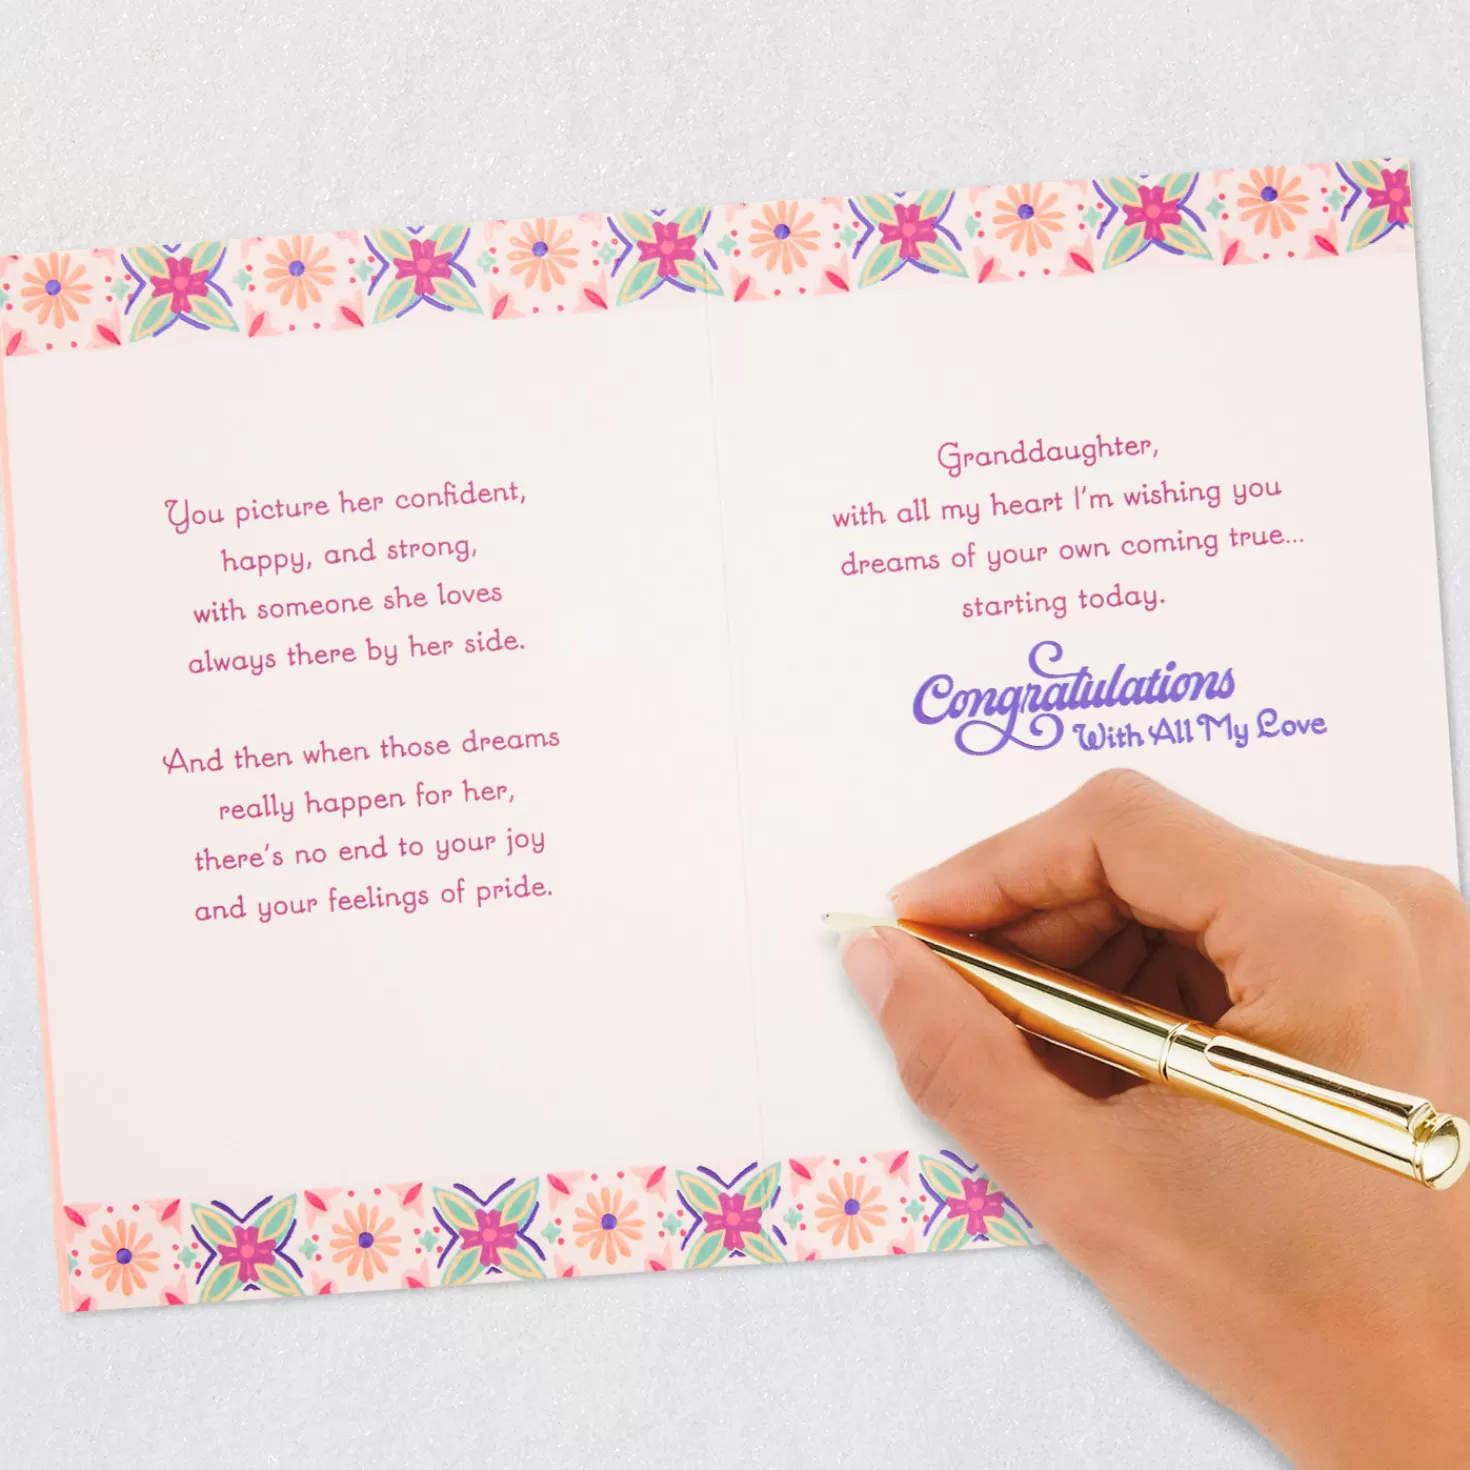 You picture her confident,
happy, and strong,
with someone she loves
always there by her side.
And then when those dreams
really happen for her,
there's no end to your joy
and your feelings of pride.
Granddaughter,
with all my heart I'm wishing you
dreams of your own coming true...
starting today.
Congratulations
With All My Love